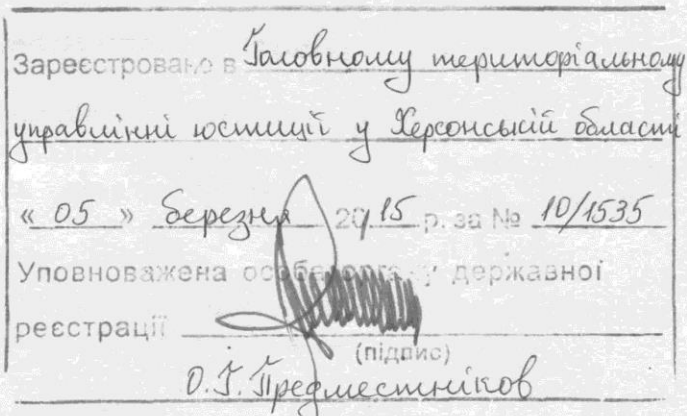 Зареєстровано в Головному територіальному
управлінні юстиції у Херсонській області
« 05 » березня 2015 р. за № 10/1535
Уповноважена особа органу державної
реєстрації
(підпис)
О.Г. Предместніков